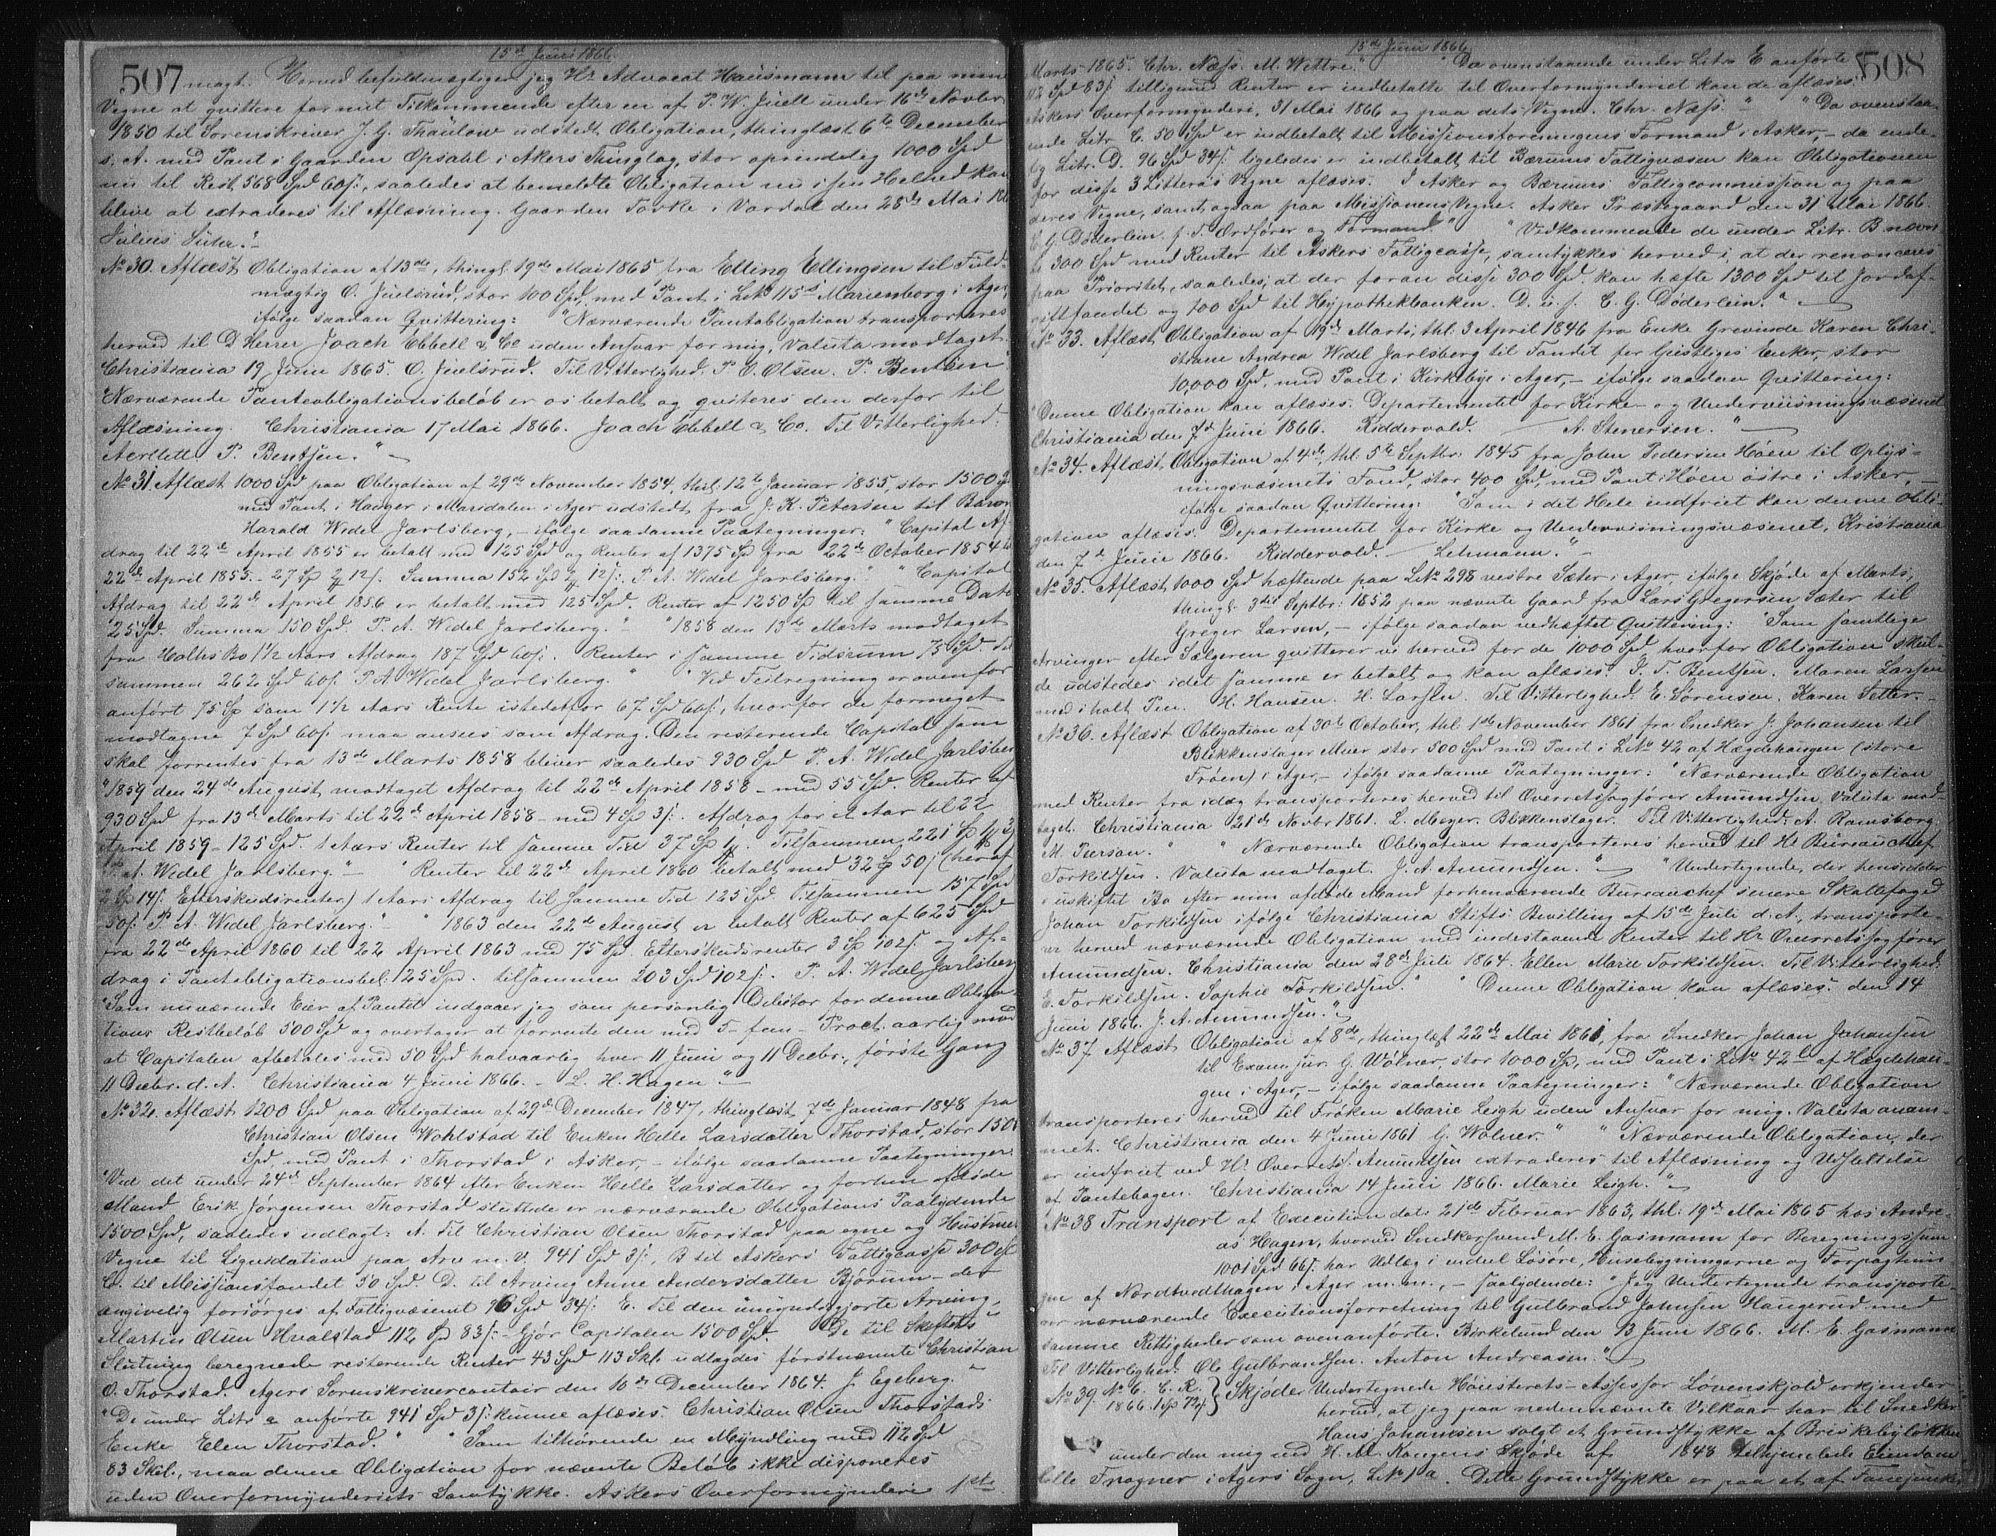 15de Juni 1866.
507
magt. Herved befuldmægtiger jeg Hr Advocat Hausmann til paa mine
Vegne at qvittere for mit Tilkommende efter en af P. W. Juell under 16de Novbr
1850 til Sorenskriver J. G. Thaulow udstedt Obligation, thinglæst 6te December
s. A. med Pant i Gaarden Opsahl i Akers Thinglag, stor oprindelig 1000 Spd
nu til Rest 568 Spd 60 s/, saaledes at bemeldte Obligation nu i sin Helhed kan
blive at extraderes til Aflæsning. Gaarden Torke i Vardal den 28de Mai 186
Julius Suter."
No 30. Aflæst Obligation af 13de, thingl. 19de Mai 1865 fra Elling Ellingsen til Fuld-
mægtig O. Juelsrud, stor 100 Spd, med Pant i LNo 115s Marienborg i Ager,
ifølge saadan Qvittering: "Nærværende Pantobligation transporteres
herved til D Herrer Joach Ebbell & Co uden Ansvar for mig, Valuta modtaget.
Christiania 19 Juni 1865. O. Juelsrud. Til Vitterlighed: P. O. Olsen. P. Bentsen"
"Nærværende Panteobligationsbeløb er os betalt og qviteres den derfor til
Aflæsning. Christiania 17 Mai 1866. Joach Ebbell & Co. Til Vitterlighed:
P. Bentsen."
No 31 Aflæst 1000 Spd paa Obligation af 29de November 1854, thl. 12te Januar 1855, stor 1500 Spd
med Pant i Hauger i Marsdalen i Ager udstedt fra J. K. Petersen til Baron
Harald Wedel Jarlsberg, - ifølge saadanne Paategninger: "Capital Af-
drag til 22de April 1855 er betalt med 125 Spd og Renter af 1375 Spd fra 22de October 1854 til
22de April 1855 - 27 Sp 12 s/. Summa 152 Spd 12 s/. P. A. Wedel Jarlsberg." "Capital
Afdrag til 22de April 1856 er betalt med 125 Spd. Renter af 1250 Sp til samme Dato
25 Spd. Summa 150 Spd. P. A. Wedel Jarlsberg." - "1858 den 13de Marts modtaget
fra Holths Bo 1½ Aars Afdrag 187 Spd 60 s/. Renter i samme Tidsrum 75 Spd til
sammen 262 Spd 60 s/ P. A. Wedel Jarlsberg." "Ved Feilregning er ovenfor
anført 75 Sp som 1½ Aars Rente istedetfor 67 Spd 60 s/, hvorfor de formeget
modtagne 7 Spd 60 s/ maa ansees som Afdrag. Den resterende Capital som
skal forrentes fra 13de Marts 1858 bliver saaledes 930 Spd P. A. Wedel Jarlsberg
"1859 den 24de August modtaget Afdrag til 22de April 1858 - med 55 Spd. Renter af
930 Spd fra 13de Marts til 22de April 1858 - med 4 Sp 3 s/. Afdrag for et Aar til 22
April 1859 - 125 Spd. 1 Aars Renter til samme Tid 37 Sp. Tilsammen 221 Sp 3 s/
P. A. Wedel Jarlsberg." - "Renter til 22de April 1860 betalt med 32 Sp 50 s/ (heraf
2 Sp 14 s/. Efterskudsrenter) 1 Aars Afdrag til samme Tid 125 Spd. Tilsammen 157 Spd
50 s/. P. A. Wedel Jarlsberg." - "1863 den 22de August er betalt Renter af 625 Spd
fra 22de April 1860 til 22 April 1863 med 75 Spd. Efterskudsrenter 3 Sp 102 s/ og Af-
drag i Pantobligationsbel. 125 Spd. tilsammen 203 Spd 102 s/. P. A. Wedel Jarlsberg
"Som nuværende Eier af Pantet indgaaer jeg som personlig Debitor for denne Obliga-
tions Restbeløb 500 Spd og overtager at forrente den med 5 - fem - Proct. aarlig med
at Capitalen afbetales med 50 Spd halvaarlig hver 11 Juni og 11 Decbr., første Gang
11 Decbr. d. A. Christiania 4 Juni 1866. - L. H. Hagen." -
No 32. Aflæst 1200 Spd paa Obligation af 29de December 1847, thinglæst 7de Januar 1848 fra
Christian Olsen Wohlstad til Enken Helle Larsdatter Thorstad, stor 1500
Spd med Pant i Thorstad i Asker, - ifølge saadanne Paategninger
"Ved det under 24de September 1864 efter Enken Helle Larsdatter og forhen afdøde
Mand Erik Jørgensen Thorstad sluttede er nærværende Obligations Paalydende
1500 Spd, saaledes udlagt: A. Til Christian Olsen Thorstad paa egne og Hustrues
Vegne til Liquidation paa Arv m. v. 941 Spd 3 s/., B til Askers Fattigcasse 300 Spd
C. til Missionsfondet 50 Spd. D. til Arving Anne Andersdatter Bjørum - der
angivelig forsørges af Fattigvæsenet 96 Spd 34 s/. E. Til den umyndiggjorte Arving
Martin Olsen Hvalstad 112 Sp 83 s/. - Gjør Capitalen 1500 Spd. De til Skiftets
Slutning beregnede resterende Renter 43 Spd 113 Sk. udlagdes førstnævnte Christian
O. Thorstad. Agers Sorenskrivercontoir den 16de December 1864. J. Egeberg."
"De under Litr a anførte 941 Spd 3 s/. kunne aflæses. Christian Olsen Thorstads
Enke Elen Thorstad." "Som tilhørende en Myndling med 112 Spd
83 Skil., maa denne Obligation for nævnte Beløb ikke disponeres
uden Overformynderiets Samtykke. Askers Overformynderi 1ste
15de Juni 1866.
508
Marts 1865. Chr. Næss. M. Wettre." "Da ovenstaaende under Litr. E anførte
112 Spd 83 s/ tilligemed Renter er indbetalte til Overformynderiet kan de aflæses.
Askers Overformynderi, 31 Mai 1866 og paa dets Vegne. Chr. Næss." "Da ovenstaa-
ende Litr. C. 50 Spd er indbetalt til Missionsforeningens Formand i Asker, - da ende-
lig Litr. D. 96 Spd 34 s/. ligeledes er indbetalt til Bærums Fattigvæsen kan Obligationen
for disse 3 Littera's Vegne aflæses. I Asker og Bærums Fattigcommission og paa
deres Vegne, samt ogsaa paa Missionens Vegne. Asker Præstegaard den 31 Mai 1866.
C. G. Døderlein. f. T. Ordfører og Formand." "Vedkommende de under Litr. B nævn-
te 300 Spd med Renter til Askers Fattigcasse, samtykkes herved i, at der renonceres
paa Prioritet, saaledes, at der foran disse 300 Spd. kan hæfte 1300 Spd til Jordaf-
fondet og 700 Spd til Hypothekbanken. D. u. s. C. G. Døderlein." -
No 33. Aflæst Obligation af 19de Marts, thl. 3 April 1846 fra Enke Grevinde Karen Chri-
stiane Andrea Wedel Jarlsberg til Fondet for Geistliges Enker, stor
10,000 Spd, med Pant i Kirkebye i Ager, - ifølge saadan Qvittering:
"Denne Obligation kan aflæses. Departementet for Kirke- og Underviisningsvæsenet
Christiania den 7de Juni 1866. Riddervold. A. Stenersen." -
No 34. Aflæst Obligation af 4de, thl. 5te Septbr. 1845 fra John Pedersen Høen til Oplys-
ningsvæsenets Fond, stor 400 Spd, med Pant i Høen østre i Asker, -
ifølge saadan Qvittering: "Som i det Hele indfriet kan denne Obli-
gation aflæses. Departementet for Kirke og Undervisningsvæsenet, Kristiania
den 7de Juni 1866. Riddervold. - Lehmann." -
No 35. Aflæst 1000 Spd hæftende paa LNo 298 vestre Sæter i Ager, ifølge Skjøde af Marts,
thingl. 3die Septbr. 1852 paa nævnte Gaard fra Lars Gregersen Sæter til
Greger Larsen, - ifølge saadan vedhæftet Qvittering: "Som samtlige
Arvinger efter Sælgeren qvitterer vi herved for de 1000 Spd, hvorfor Obligation skul-
de udstedes idet samme er betalt og kan aflæses. J. T. Bentsen. Maren Larsen
med iholt Pen. H. Hansen. H. Larsen. Til Vitterlighed: E. Sørensen. Karen Setter.
No 36. Aflæst Obligation af 30te October, thl. 1ste November 1861 fra Snedker J. Johansen til
Blikkenslager Meier stor 500 Spd med Pant i LNo 42 af Hægdehaugen (store
Frøen) i Ager, - ifølge saadanne Paategninger: "Nærværende Obligation
med Renter fra idag transporteres herved til Overretssagfører Amundsen, Valuta mod-
taget. Christiania 21de Novbr 1861. L. Meyer. Blikkenslager. Til Vitterlighed. A. Ramsborg.
M. Piersen." "Nærværende Obligation transporteres herved til Hr Bureauchef
Torkildsen. Valuta modtaget. J. A. Amundsen." - "Undertegnede, der hensidder
i uskiftet Bo efter min afdøde Mand forhenværende Bureauchef senere Skattefoged
Johan Torkildsen ifølge Christiania Stifts Bevilling af 15de Juli d. A., transporte-
rer herved nærværende Obligation med indestaaende Renter til Hr Overretssagfører
Amundsen. Christiania den 28de Juli 1864. Ellen Marie Torkildsen. Til Vitterlighed:
E. Torkildsen. Sophie Torkildsen." "Denne Obligation kan aflæses. den 14
Juni 1866. J. A. Amundsen." -
No 37 Aflæst Obligation af 8de, thinglæst 22de Mai 1861, fra Snedker Johan Johansen
til Exam. jur. G. Wølner, stor 1000 Sp, med Pant i LNo 42 af Hægdehau-
gen i Ager, - ifølge saadanne Paategninger: "Nærværende Obligation
transporteres herved til Frøken Marie Leigh uden Ansvar for mig. Valuta anam-
met. Christiania den 4 Juni 1861 G. Wølner." "Nærværende Obligation, der
er indfriet ved Hr Overrets. Amundsen extraderes til Aflæsning og Udslettelse
af Pantebogen. Christiania 14 Juni 1866. Marie Leigh." -
No 38 Transport af Execution dat. 21de Februar 1863, thl. 19de Mai 1865 hos Andre-
as Hagen, hvorved Snedkersvend M. E. Gasmann for Beregningssum
1001 Spd 66 s/. har Udlæg i endeel Løsøre, Husebygningerne og Forpagtnin-
gne af Nordtvedthagen i Ager m. m., - saalydende: "Jeg Undertegnede transporte-
rer nærværende Executionsforretning til Gulbrand Johnsen Haugerud med
samme Rettigheder som ovenanførte. Birkelund den 13 Juni 1866. M. E. Gasmann
Til Vitterlighed. Ole Gulbrandsen. Anton Andreasen." -
No 39. No 6. C. R. 1866. 1 Sp 72 s/. } Skjøder Undertegnede Høiesterets-Assessor Løvenskjold erkjender
herved, at jeg paa nedennævnte Vilkaar har til Snedker
Hans Johansen solgt et Grundstykke af Briskebyløkken
under den mig med H. M. Kongens Skjøde af 1848 tilhjemlede Eiendom
lille Frogner i Agers Sogn, LNo 1a. Dette Grundstykke er paa et af